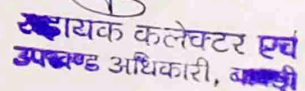 सहायक कलेक्टर एवं
उपखण्ड अधिकारी,